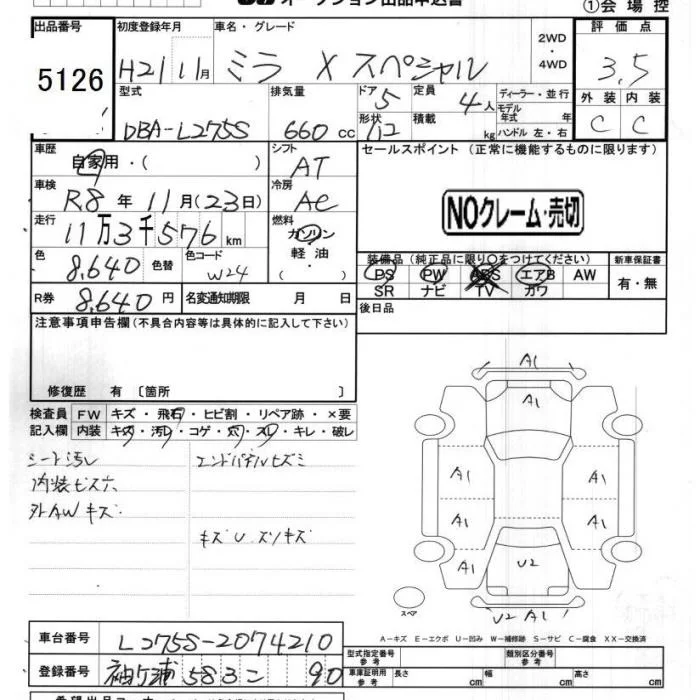 オークション出品申込書
①会場控
出品番号 初度登録年月 車名・グレード 評価点
5126 H21 11月 ミラ X スペシャル 2WD・4WD 3.5
型式 排気量 ドア 5 定員 4人 ディーラー・並行 外装 内装
DBA-L275S 660cc 形状 積載 kg モデル年式 年 ハンドル 左・右 C C
車歴 自家用・( ) シフト AT セールスポイント(正常に機能するものに限ります)
車検 R8年11月(23日) 冷房 AC
NOクレーム・売切
走行 11万3千576km 燃料 ガソリン
軽油
・( )
色 8,640 色替 色コード W24 装備品(純正品に限り○をつけてください) 新車保証書
PS PW ABS エアB AW 有・無
SR ナビ TV カワ
R券 8,640円 名変通知期限 月 日 後日品
注意事項申告欄(不具合内容等は具体的に記入して下さい)
修復歴 有〔箇所 〕
検査員 FW キズ・飛石・ヒビ割・リペア跡・×要
記入欄 内装 キズ・汚レ・コゲ・穴・スレ・キレ・破レ
シート汚レ エンドパネルヒズミ
内装ビス穴
外AWキズ
キズU スソキズ
A1
A1
A1 A1
A1 A1
A1 U2 A1
U2 A1
スペア
A-キズ E-エクボ U-凹み W-補修跡 S-サビ C-腐食 XX-交換済
車台番号 L275S-2074210 型式指定番号 参考 類別区分番号 参考
登録番号 袖ケ浦 583 こ 90 車庫証明用 参考 長さ cm 幅 cm 高さ cm